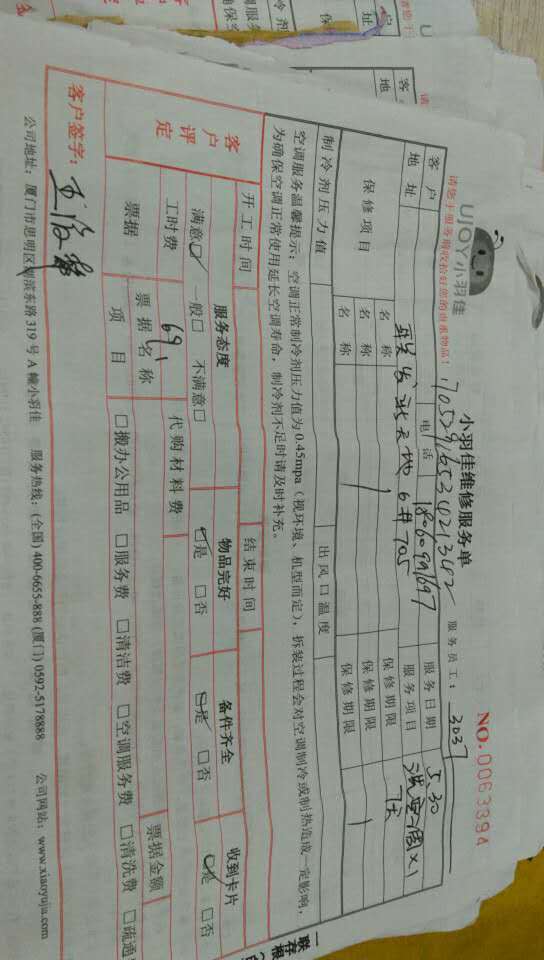 UJOY小羽佳
小羽佳维修服务单
NO.0063394
请您于服务前收拾好您的贵重物品！
服务员工：3037
客户
电话 18060991697
服务日期 5.30
地址
6# 705
服务项目
保修项目
名称
保修期限 7天
名称
保修期限
名称
保修期限
制冷剂压力值
出风口温度
空调服务温馨提示：空调正常制冷剂压力值为0.45mpa（视环境、机型而定），拆装过程会对空调制冷或制热造成一定影响，
为确保空调正常使用延长空调寿命，制冷剂不足时请及时补充。
开工时间
结束时间
客户评定
服务态度
物品完好
备件齐全
收到卡片
满意☑ 一般□ 不满意□
☑是 □否
☑是 □否
☑是 □否
工时费 69
代购材料费
票据
票据名称
票据金额
项目
□搬办公用品 □服务费 □清洁费 □空调服务费 □清洗费 □疏通
客户签字：
公司地址：厦门市思明区湖滨东路319号A幢小羽佳 服务热线：(全国) 400-6655-888 (厦门) 0592-5178888 公司网站：www.xiaoyujia.com
一联存根